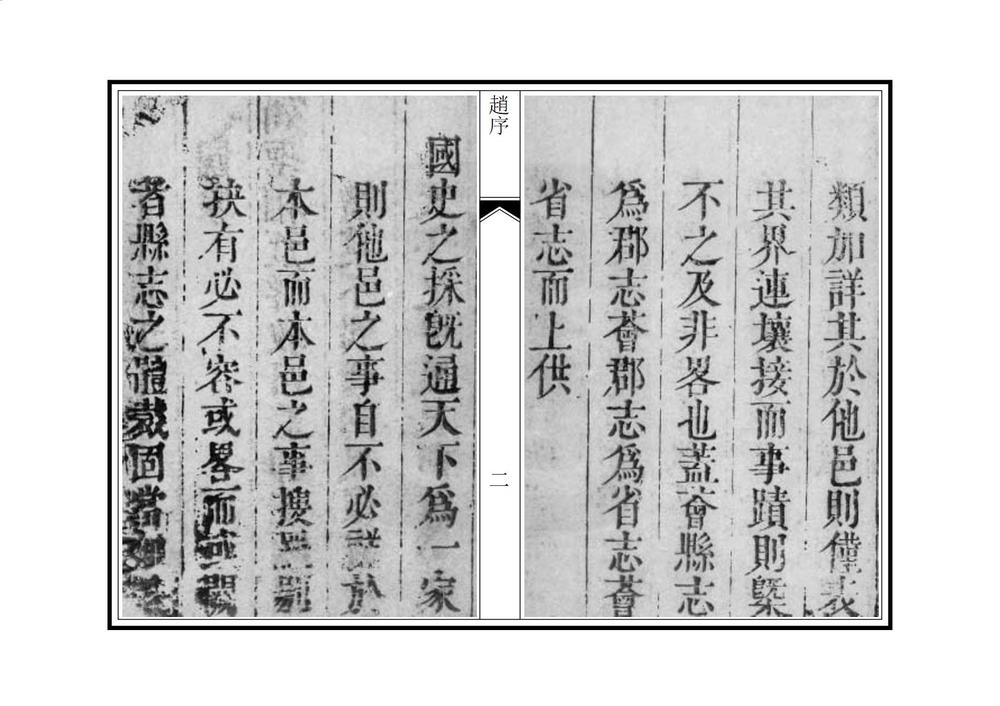 類加詳其於他邑則僅表
其界連壤接而事蹟則槩
不之及非畧也蓋薈縣志
爲郡志薈郡志爲省志薈
省志而上供
趙序
二
國史之採旣通天下爲一家
則他邑之事自不必詳於
本邑而本邑之事搜
抉有必不容或畧而或闕
者縣志之體裁固當